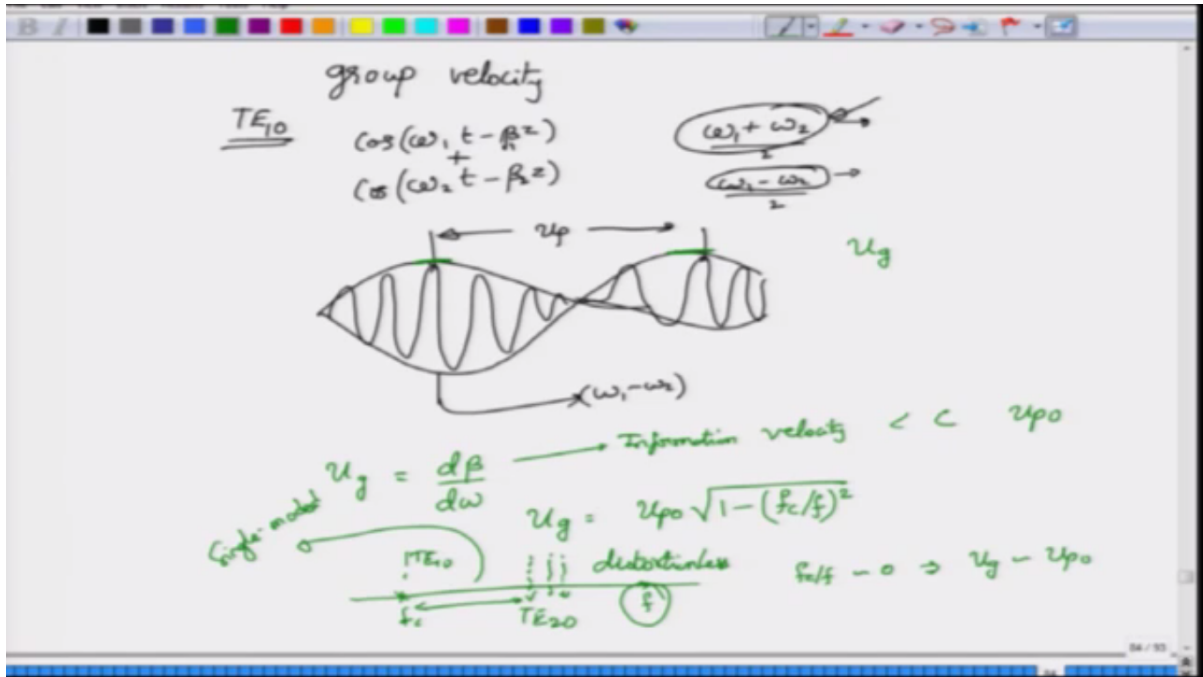 group velocity
TE₁₀
cos(ω₁t − β₁z)
+
cos(ω₂t − β₂z)
ω₁ + ω₂ / 2
ω₁ − ω₂ / 2
up
ug
(ω₁ − ω₂)
ug = dβ/dω → Information velocity < c up0
Single-moded
ug = up0 √(1 − (fc/f)²)
TE₁₀
distortionless
fc/f − 0 ⇒ ug − up0
fc
TE₂₀
f
84 / 93